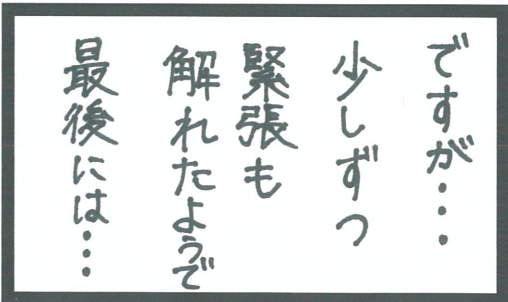 ですが・・・
少しずつ
緊張も
解れたようで
最後には・・・